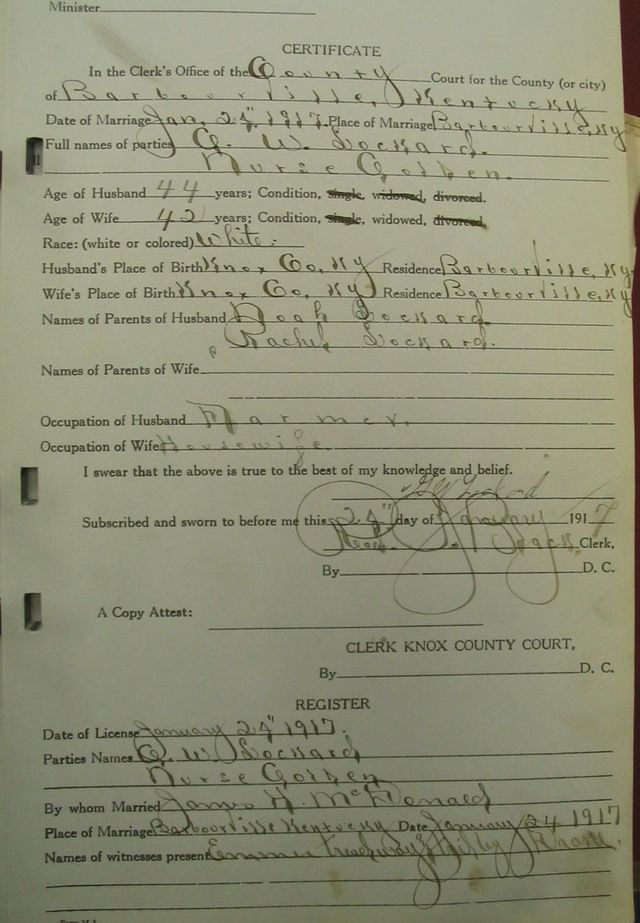 Minister
CERTIFICATE
In the Clerk's Office of the County Court for the County (or city)
of Barbourville, Kentucky
Date of Marriage Jan, 24" 1917. Place of Marriage Barbourville, Ky
Full names of parties G. W. Lockard.
Nurse Golden.
Age of Husband 44 years; Condition, single, widowed, divorced.
Age of Wife 42 years; Condition, single, widowed, divorced.
Race: (white or colored) White.
Husband's Place of Birth Knox Co, Ky Residence Barbourville, Ky
Wife's Place of Birth Knox Co, Ky Residence Barbourville, Ky
Names of Parents of Husband Noah Lockard.
Rachel Lockard.
Names of Parents of Wife
Occupation of Husband Farmer.
Occupation of Wife Housewife
I swear that the above is true to the best of my knowledge and belief.
G W Lockard
Subscribed and sworn to before me this 24" day of January 1917
Clerk,
By D. C.
A Copy Attest:
CLERK KNOX COUNTY COURT,
By D. C.
REGISTER
Date of License January 24" 1917.
Parties Names G. W. Lockard
Nurse Golden
By whom Married James H. McDonald
Place of Marriage Barbourville Kentucky Date January 24 1917
Names of witnesses present Treadway &